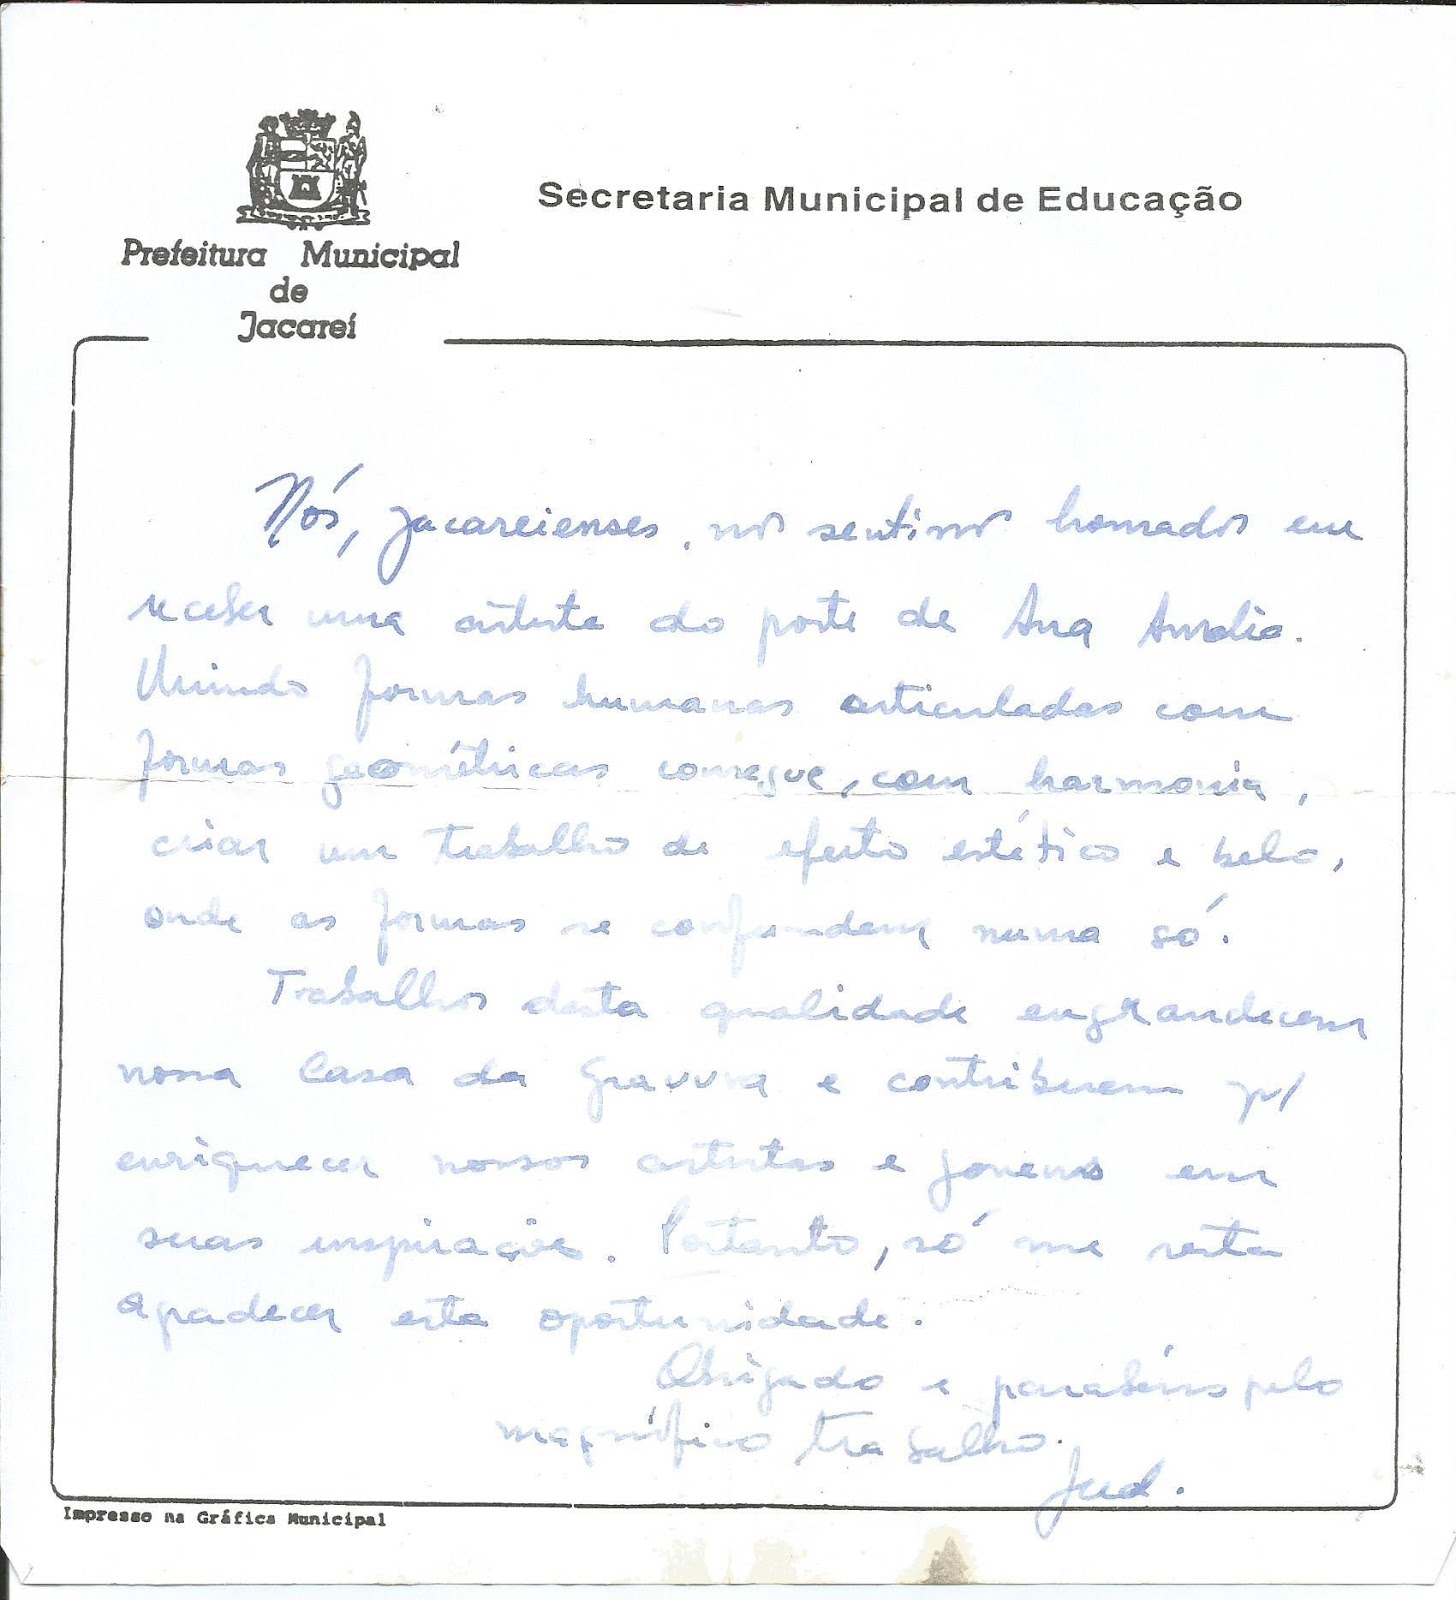 Secretaria Municipal de Educação
Prefeitura Municipal
de
Jacareí
Nós, jacareienses, nos sentimos honrados em
receber uma artista do porte de Ana Amélia.
Unindo formas humanas articuladas com
formas geométricas consegue, com harmonia,
criar um trabalho de efeito estético e belo,
onde as formas se confundem numa só.
Trabalhos desta qualidade engrandecem
nossa Casa da Gravura e contribuem p/
enriquecer nossos artistas e jovens em
suas inspirações. Portanto, só me resta
agradecer esta oportunidade.
Obrigado e parabéns pelo
magnífico trabalho.
Impresso na Gráfica Municipal